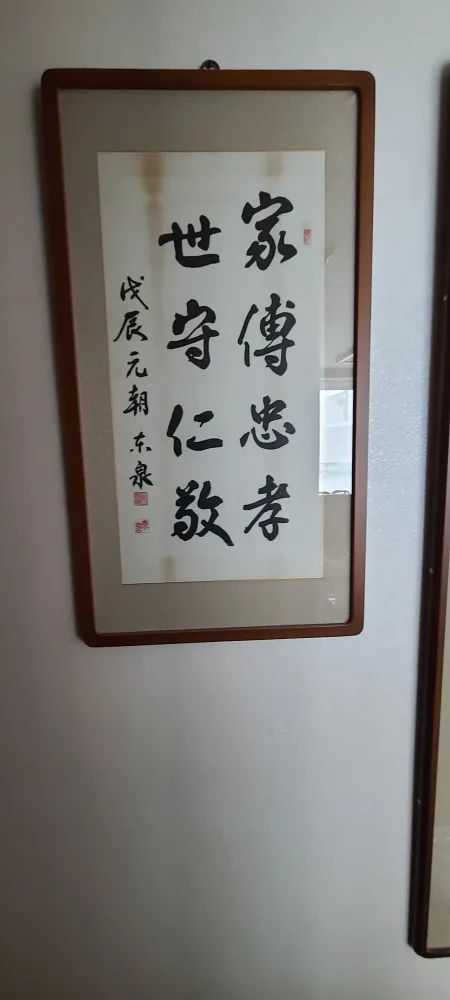 家傳忠孝
世守仁敬
戊辰元朝 东泉